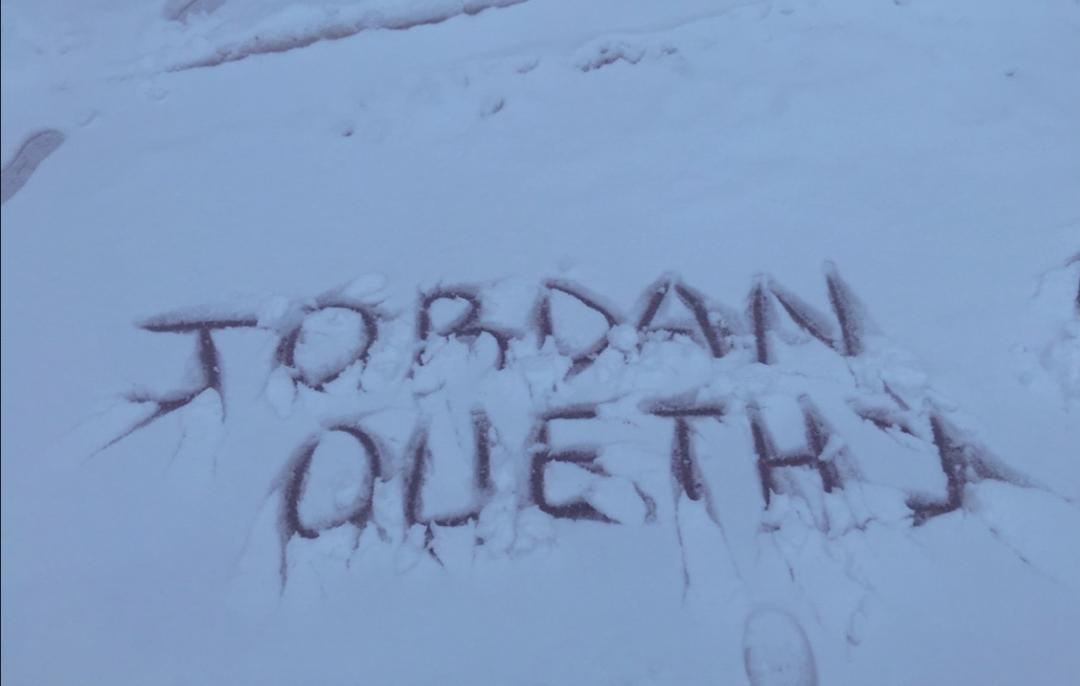 JORDAN
OUETHJ